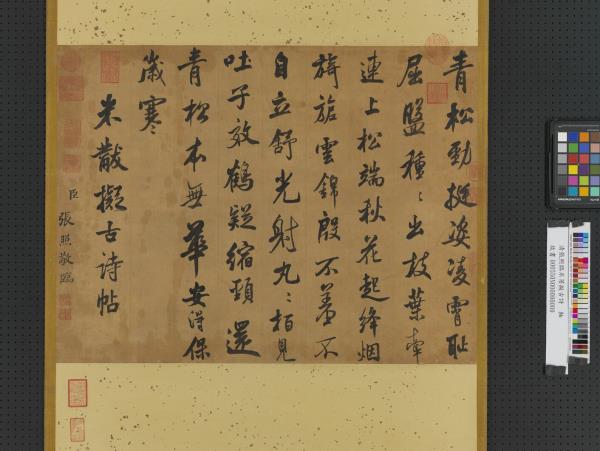 青松勁挺姿凌霄恥
屈盤種〻出枝葉牽
連上松端秋花起絳烟
旖旎雲錦殷不羞不
自立舒光射丸〻柏見
吐子效鶴疑縮頸還
青松本無華安得保
歲寒
米黻擬古诗帖
臣張照敬臨